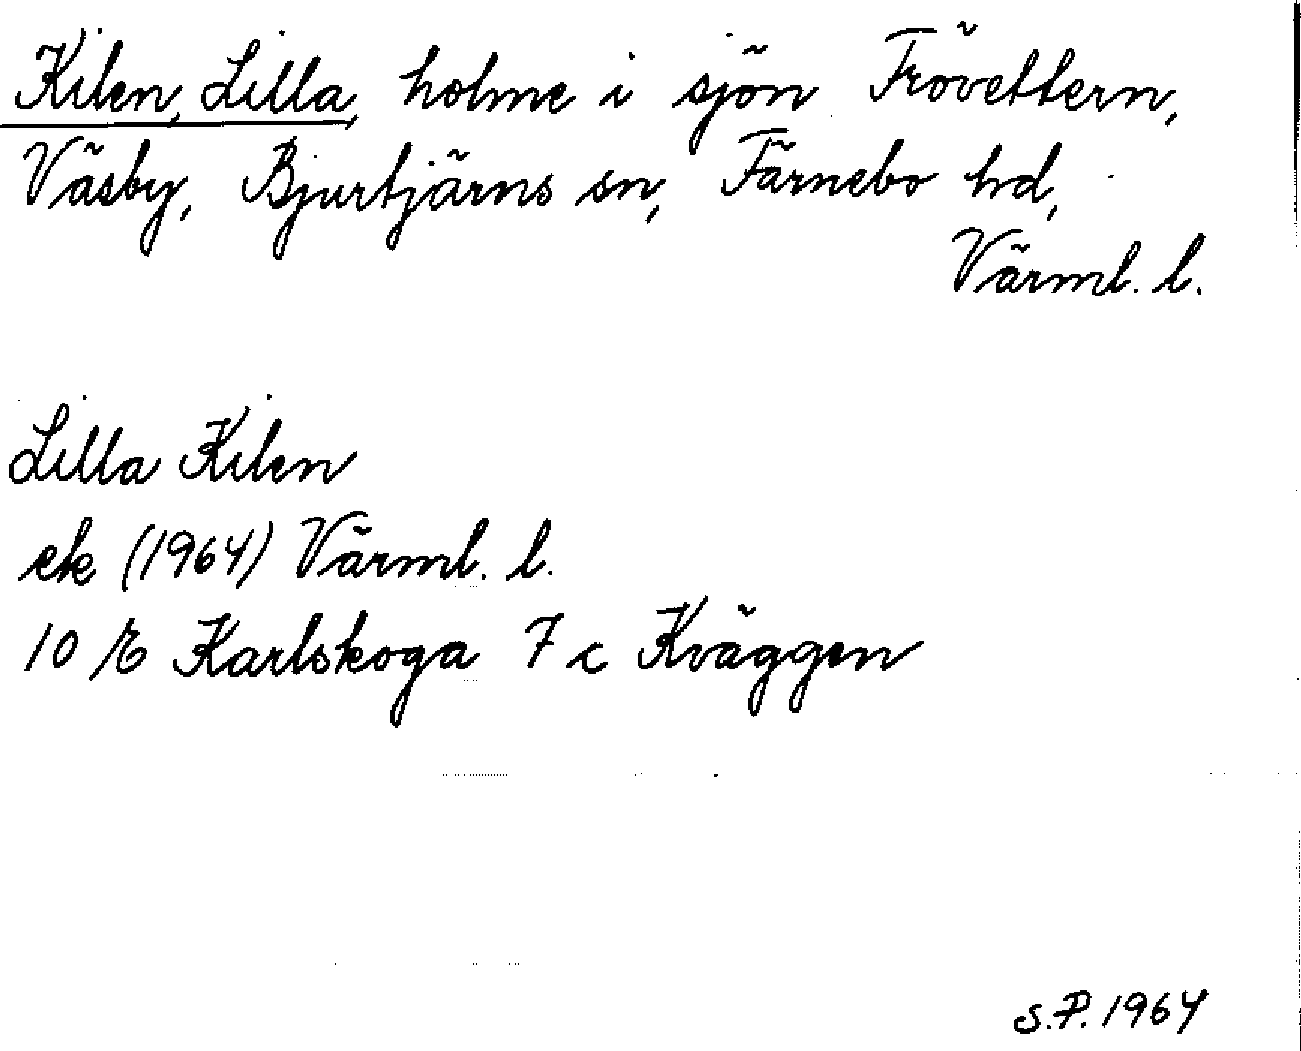 Kilen, Lilla, holme i sjön Frövettern,
Väsby, Bjurtjärns sn, Färnebo hd,
Värml. l.
Lilla Kilen
ek (1964) Värml. l.
10 E Karlskoga 7 c Kväggen
S.P. 1964